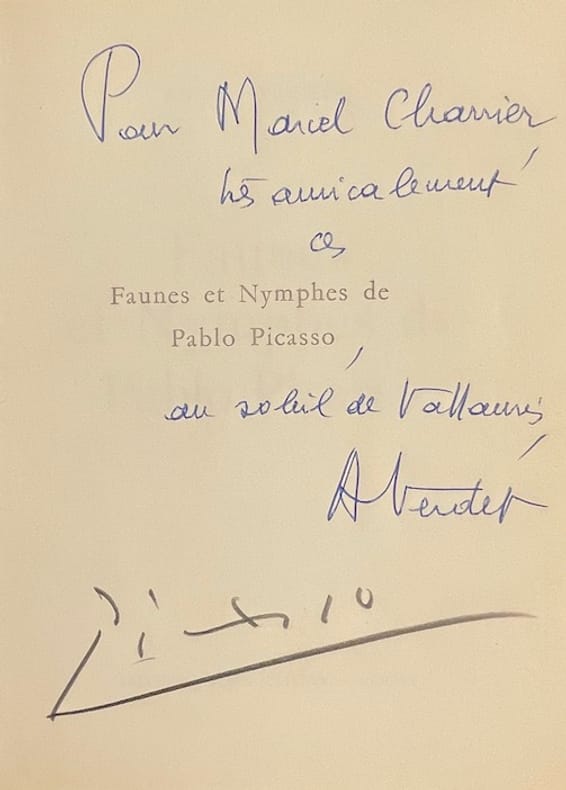 Pour Marcel Charrier
très amicalement
ces
Faunes et Nymphes de
Pablo Picasso
au soleil de Vallauris
A Verdet
Picasso